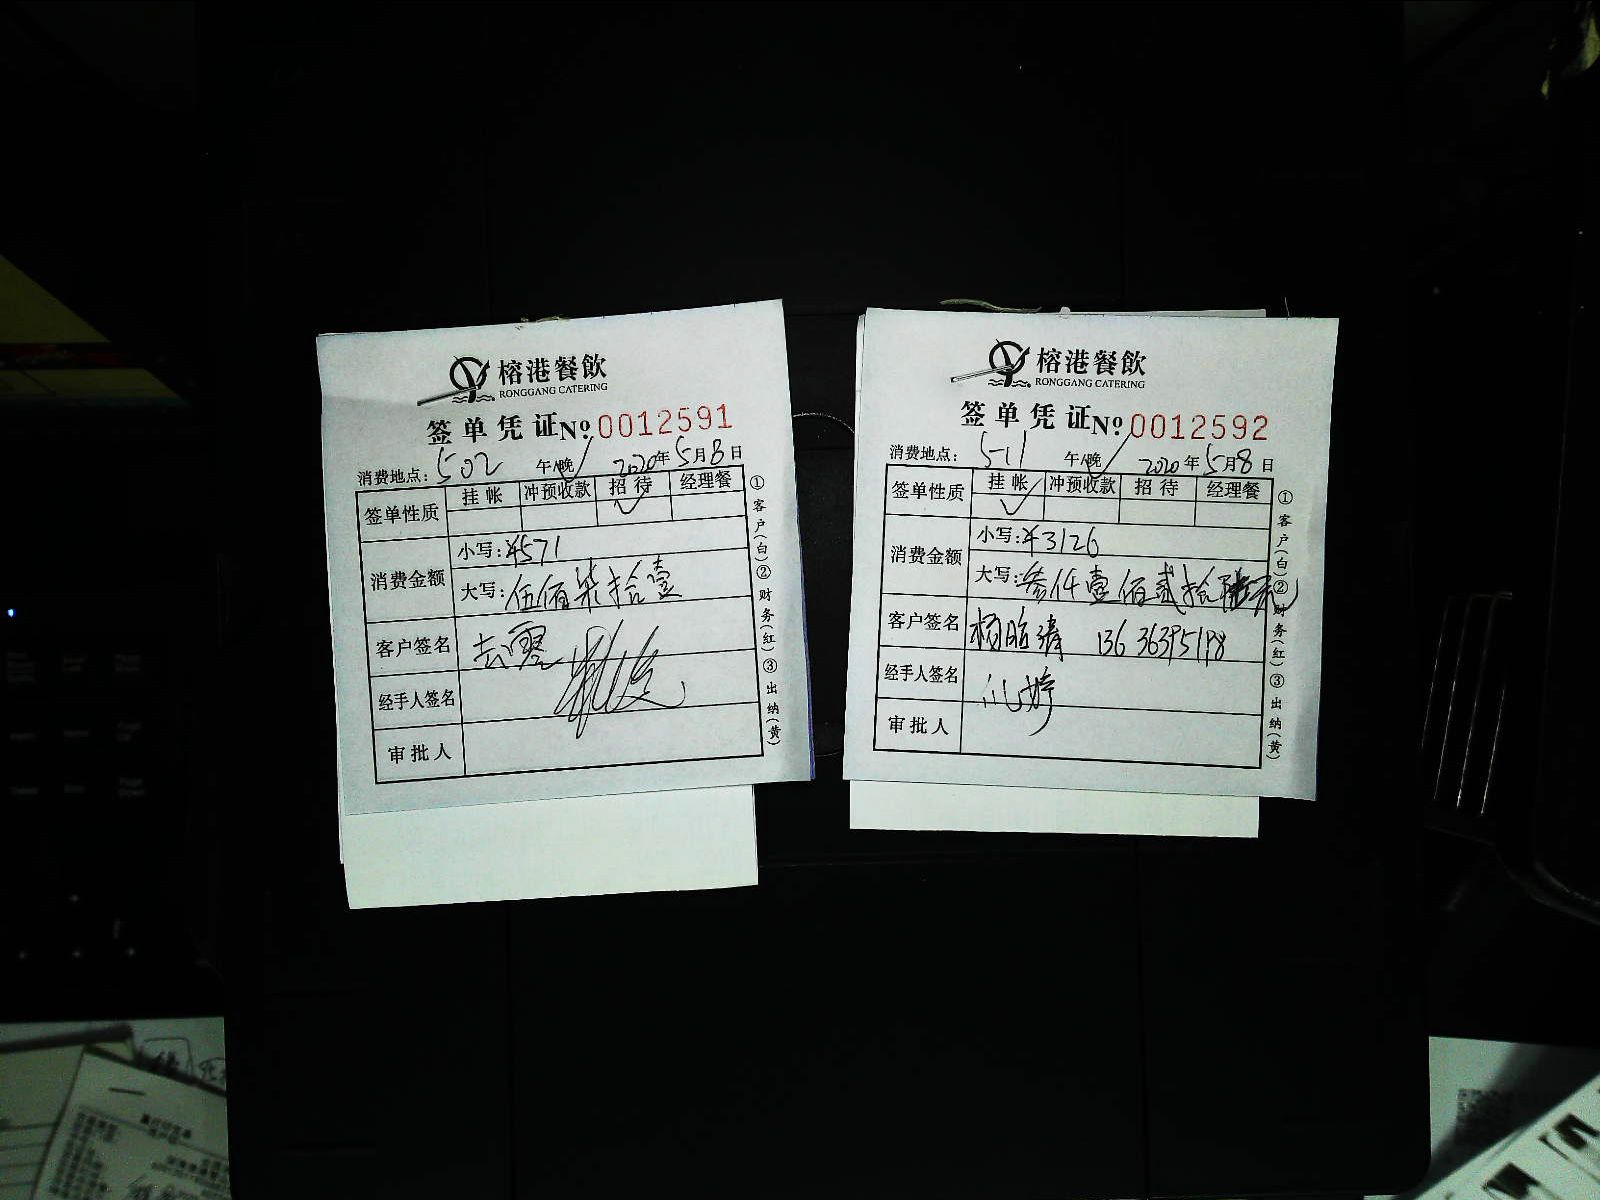 榕港餐飲
RONGGANG CATERING
签单凭证 No 0012591
消费地点：502 午/晚 2020年5月8日
签单性质 挂帐 冲预收款 招待 经理餐
消费金额 小写：¥571
大写：伍佰柒拾壹
客户签名
经手人签名
审批人
①客户(白)②财务(红)③出纳(黄)
榕港餐飲
RONGGANG CATERING
签单凭证 No 0012592
消费地点：511 午/晚 2020年5月8日
签单性质 挂帐 冲预收款 招待 经理餐
消费金额 小写：¥3126
大写：叁仟壹佰贰拾陆元
客户签名
经手人签名
审批人
①客户(白)②财务(红)③出纳(黄)